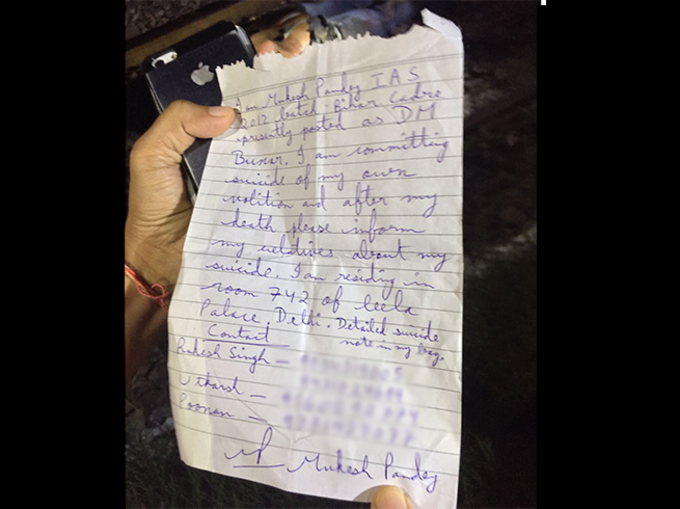 I am Mukesh Pandey IAS
2012 batch, Bihar Cadre
presently posted as DM
Buxar. I am committing
suicide of my own
volition and after my
death please inform
my relatives about my
suicide. I am residing in
room 742 of leela
Palace, Delhi. Detailed suicide
note in my bag.
Contact
Rakesh Singh —
Utkarsh —
Poonam —
MP Mukesh Pandey